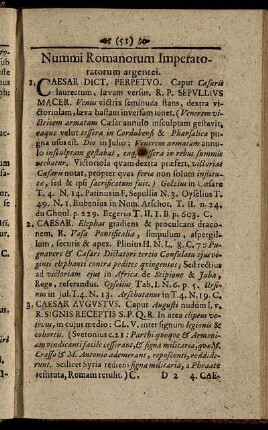 (51)
Nummi Romanorum Imperato-
ratorum argentei.
1. CAESAR DICT. PERPETVO. Caput Cæsaris
laureatum, lævam versus. R. P. SEPVLLIVS
MACER. Venus victrix seminuda stans, dextra vi-
ctoriolam, læva hastam inversam tenet, (Venerem vi-
ctricem armatam Cæsar annulo insculptam gestavit,
eaque velut tessera in Cordubensi & Pharsalica pu-
gna usus est. Dio in Julio: Venerem armatam annu-
lo insculptam gestabat, eaq. tessera in rebus summis
utebatur. Victoriola quam dextra præfert, victorias
Cæsaris notat, propter quas feria non solum institu-
tæ, sed & ipsi sacrificatum fuit. ) Goltzius in Cæsare
T. 4. N. 14. Patinus in F. Sepullia N. 3. Oyselius T.
49. N. 1. Rubenius in Num. Arschot. T. II. n. 24.
du Choul. p. 229. Begerus T. II. I. B p. 603. C.
2. CAESAR. Elephas gradiens & proculcans draco-
nem, R. Vasa Pontificalia, simpulum, aspergil-
lum, securis & apex. Plinius H. N. L. 8. C. 7: Pu-
gnavere & Cæsari Dictatori tertio Consulatu ejus vi-
ginti elephanti contra pedites quingentos; Sed rectius
ad victoriam ejus in Africa de Scipione & Juba,
Rege, referendus. Oyselius Tab. I. N. 6. p. 5. Ursi-
nus in jul. T. 4. N. 13. Arschotanus in T. 4. N. 19. C.
3. CAESAR AVGVSTVS. Caput Augusti nudum l. v.
R. SIGNIS RECEPTIS S. P. Q. R. In area clipeus vo-
tivus, in cujus medio: CL. V. inter signum legionis &
cohortis. (Svetonius c. 21: Parthi quoque & Armeni-
am vindicanti facile cesserant, & signa militaria, quæ M.
Crasso & M. Antonio ademerant, reposcenti, reddide-
runt. Scilicet Syria rediens signa militaria, a Phraate
restituta, Romam retulit. )C. D 2 4. CAE-